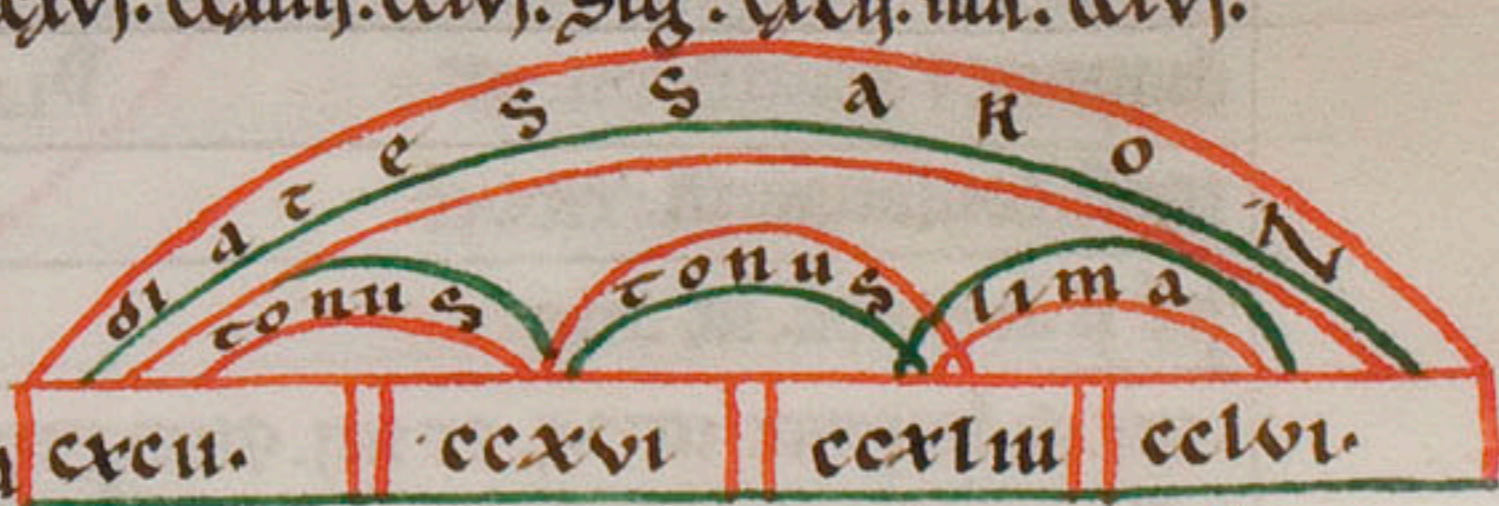 cclvj.
diatessaRoN
tonus tonus lima
cxcii. ·ccxvi ccxliii cclvi.